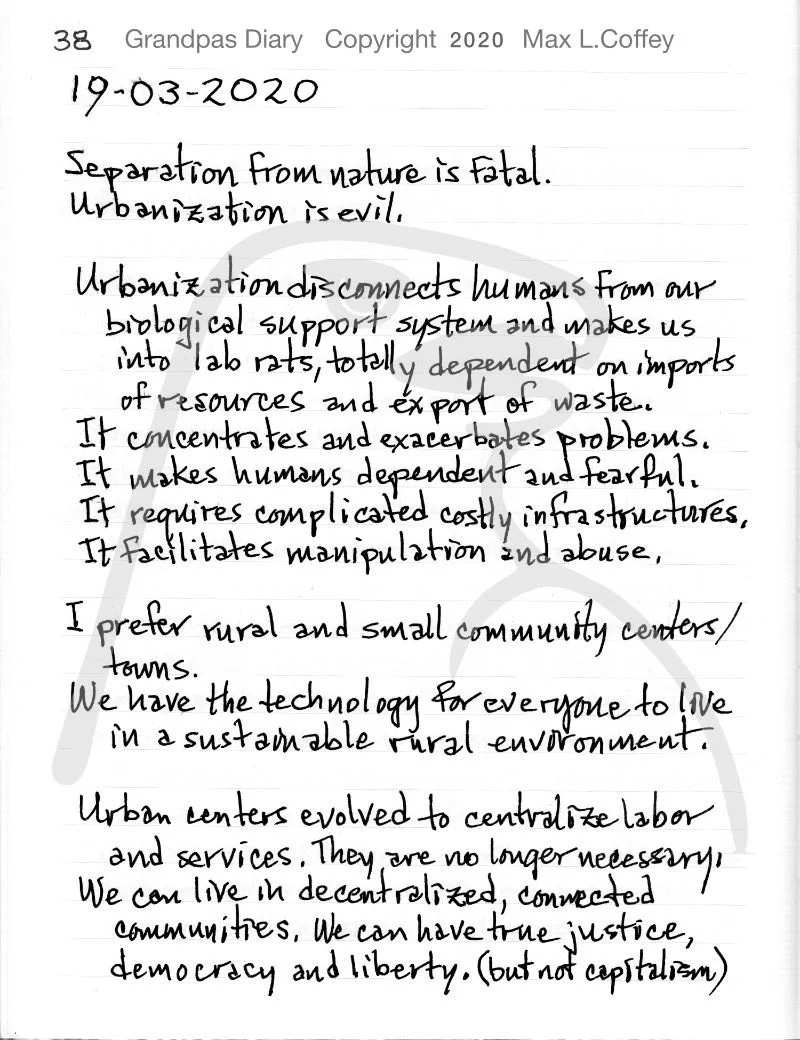 38 Grandpas Diary Copyright 2020 Max L.Coffey
19-03-2020
Separation from nature is fatal.
Urbanization is evil.
Urbanization disconnects humans from our
biological support system and makes us
into lab rats, totally dependent on imports
of resources and export of waste.
It concentrates and exacerbates problems.
It makes humans dependent and fearful.
It requires complicated costly infrastructures.
It facilitates manipulation and abuse.
I prefer rural and small community centers/
towns.
We have the technology for everyone to live
in a sustainable rural environment.
Urban centers evolved to centralize labor
and services. They are no longer necessary.
We can live in decentralized, connected
communities. We can have true justice,
democracy and liberty. (but not capitalism)